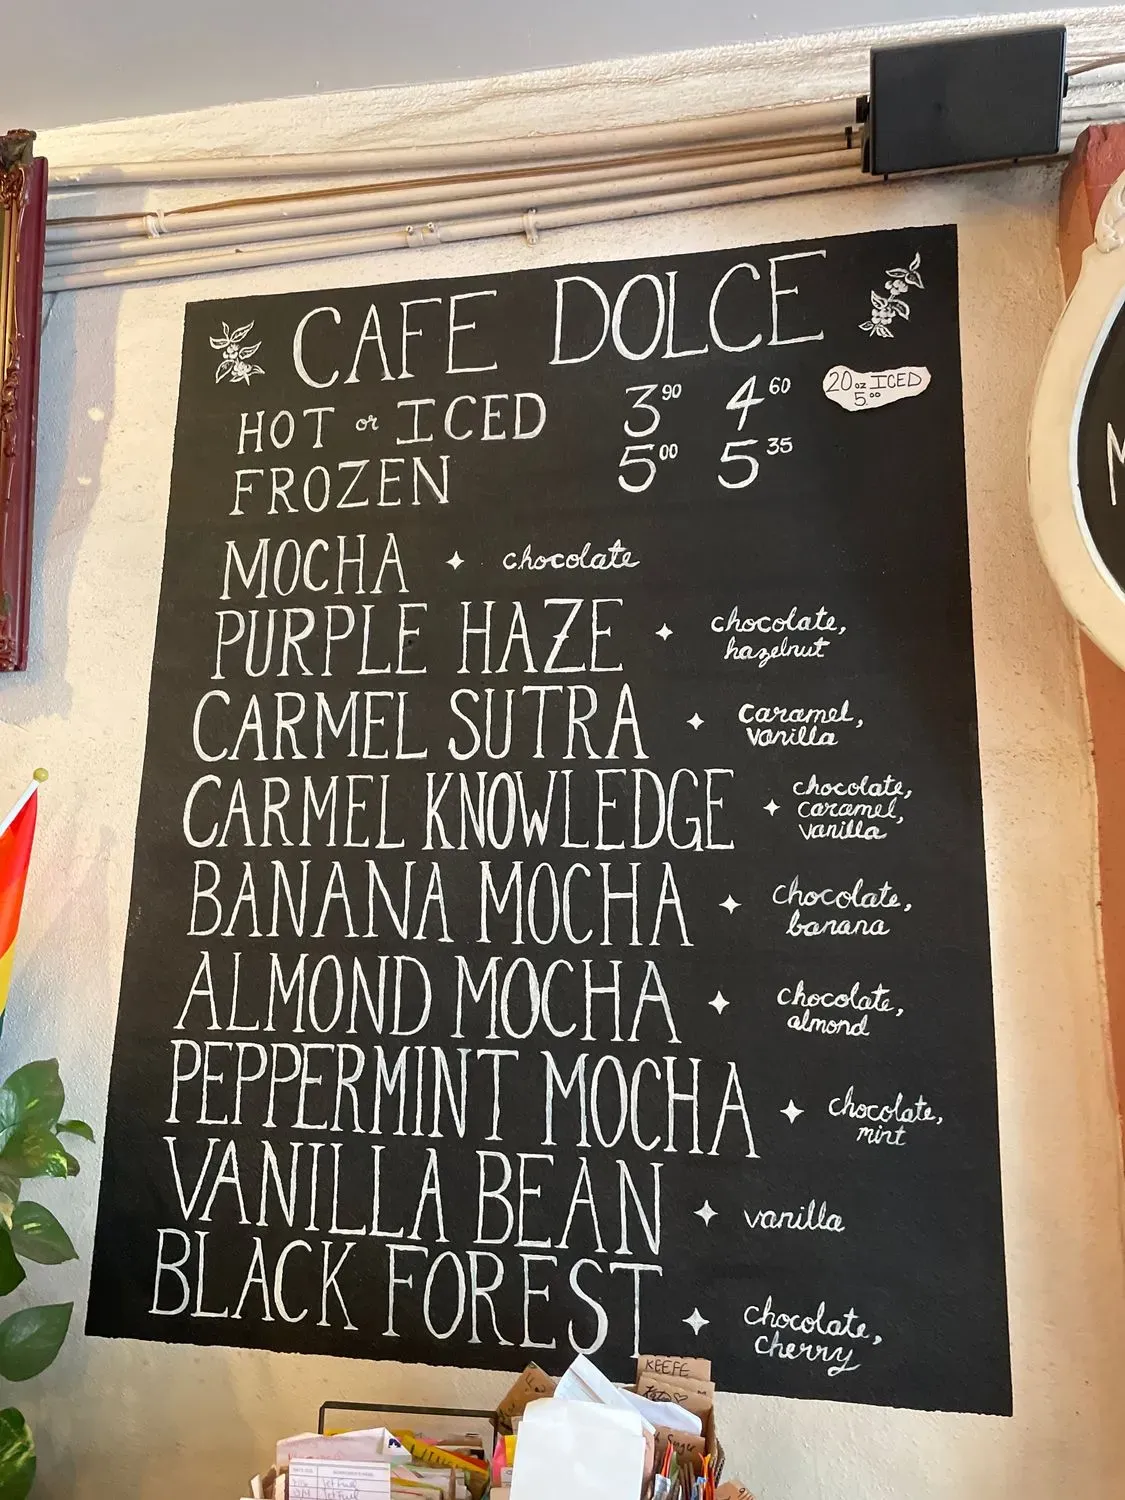 CAFE DOLCE
HOT or ICED 3⁹⁰ 4⁶⁰ 20oz ICED
5.⁰⁰
FROZEN 5⁰⁰ 5³⁵
MOCHA ✦ chocolate
PURPLE HAZE ✦ chocolate,
hazelnut
CARMEL SUTRA ✦ caramel,
vanilla
CARMEL KNOWLEDGE ✦ chocolate,
caramel,
vanilla
BANANA MOCHA ✦ chocolate,
banana
ALMOND MOCHA ✦ chocolate,
almond
PEPPERMINT MOCHA ✦ chocolate,
mint
VANILLA BEAN ✦ vanilla
BLACK FOREST ✦ chocolate,
cherry
M
KEEFE